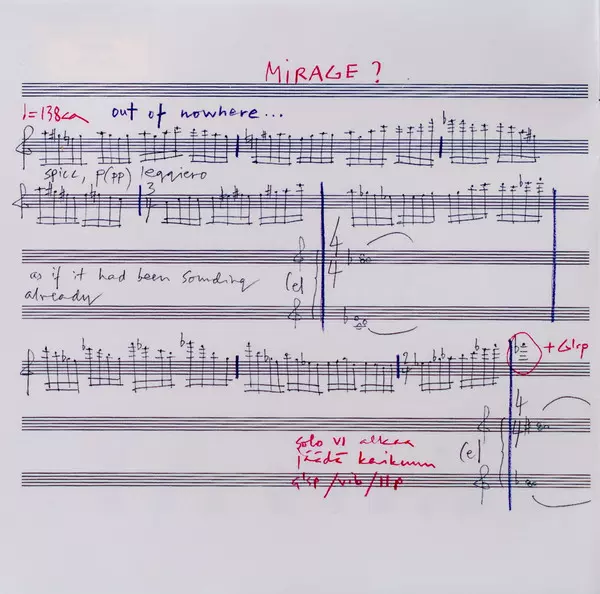 MIRAGE?
♩=138ca out of nowhere...
spicc, p(pp) leggiero
3
4
4
4
as if it had been sounding
already
(el
+Glsp
2
4
4
4
solo vl alkaa
jäädä kaikumaan
glsp/vib/Hp
(el